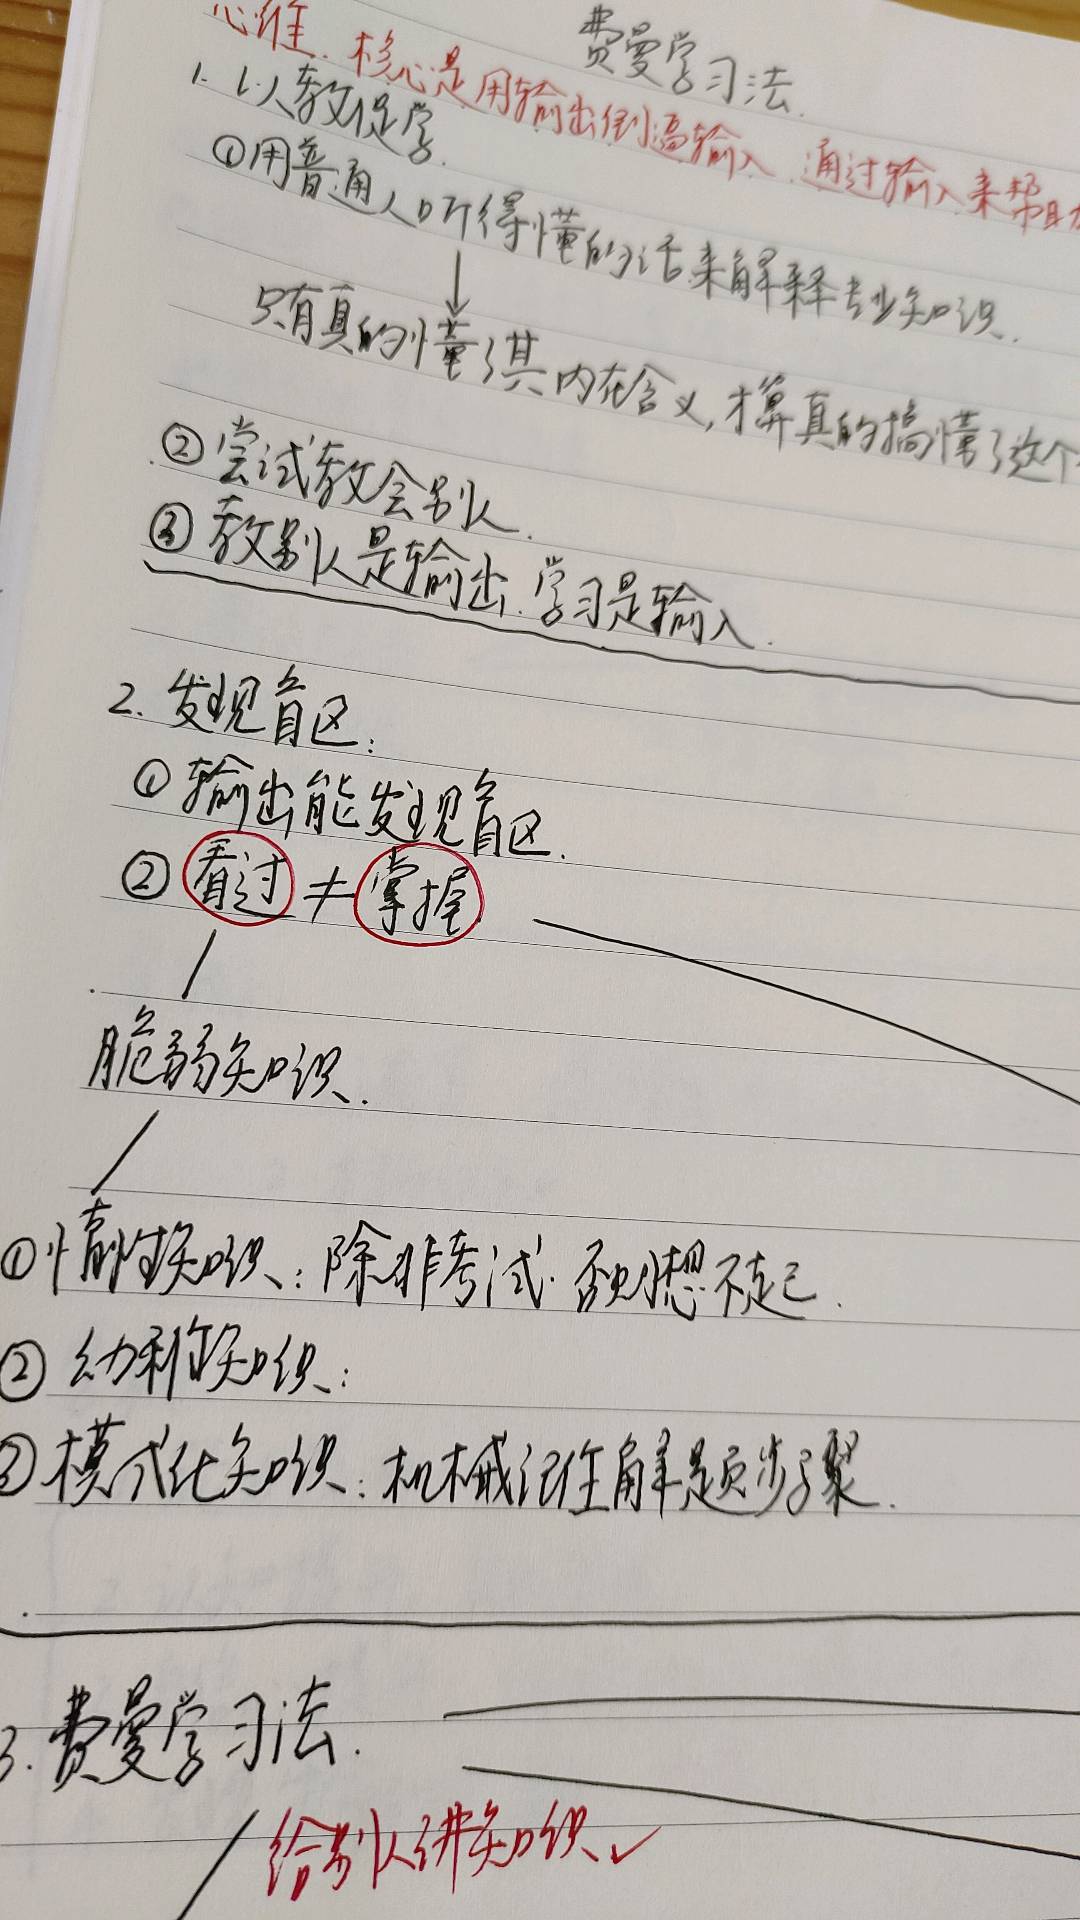 费曼学习法.
思维.核心是用输出倒逼输入.通过输入来帮助
1. 以教促学.
①用普通人听得懂的话来解释专业知识.
↓
只有真的懂了其内在含义,才算真的搞懂了这个
②尝试教会别人.
③教别人是输出.学习是输入.
2. 发现盲区:
①输出能发现盲区.
②看过≠掌握
脆弱知识.
①惰性知识:除非考试.否则想不起.
②幼稚知识:
③模式化知识:机械记住解题步骤.
3.费曼学习法.
给别人讲知识.✓